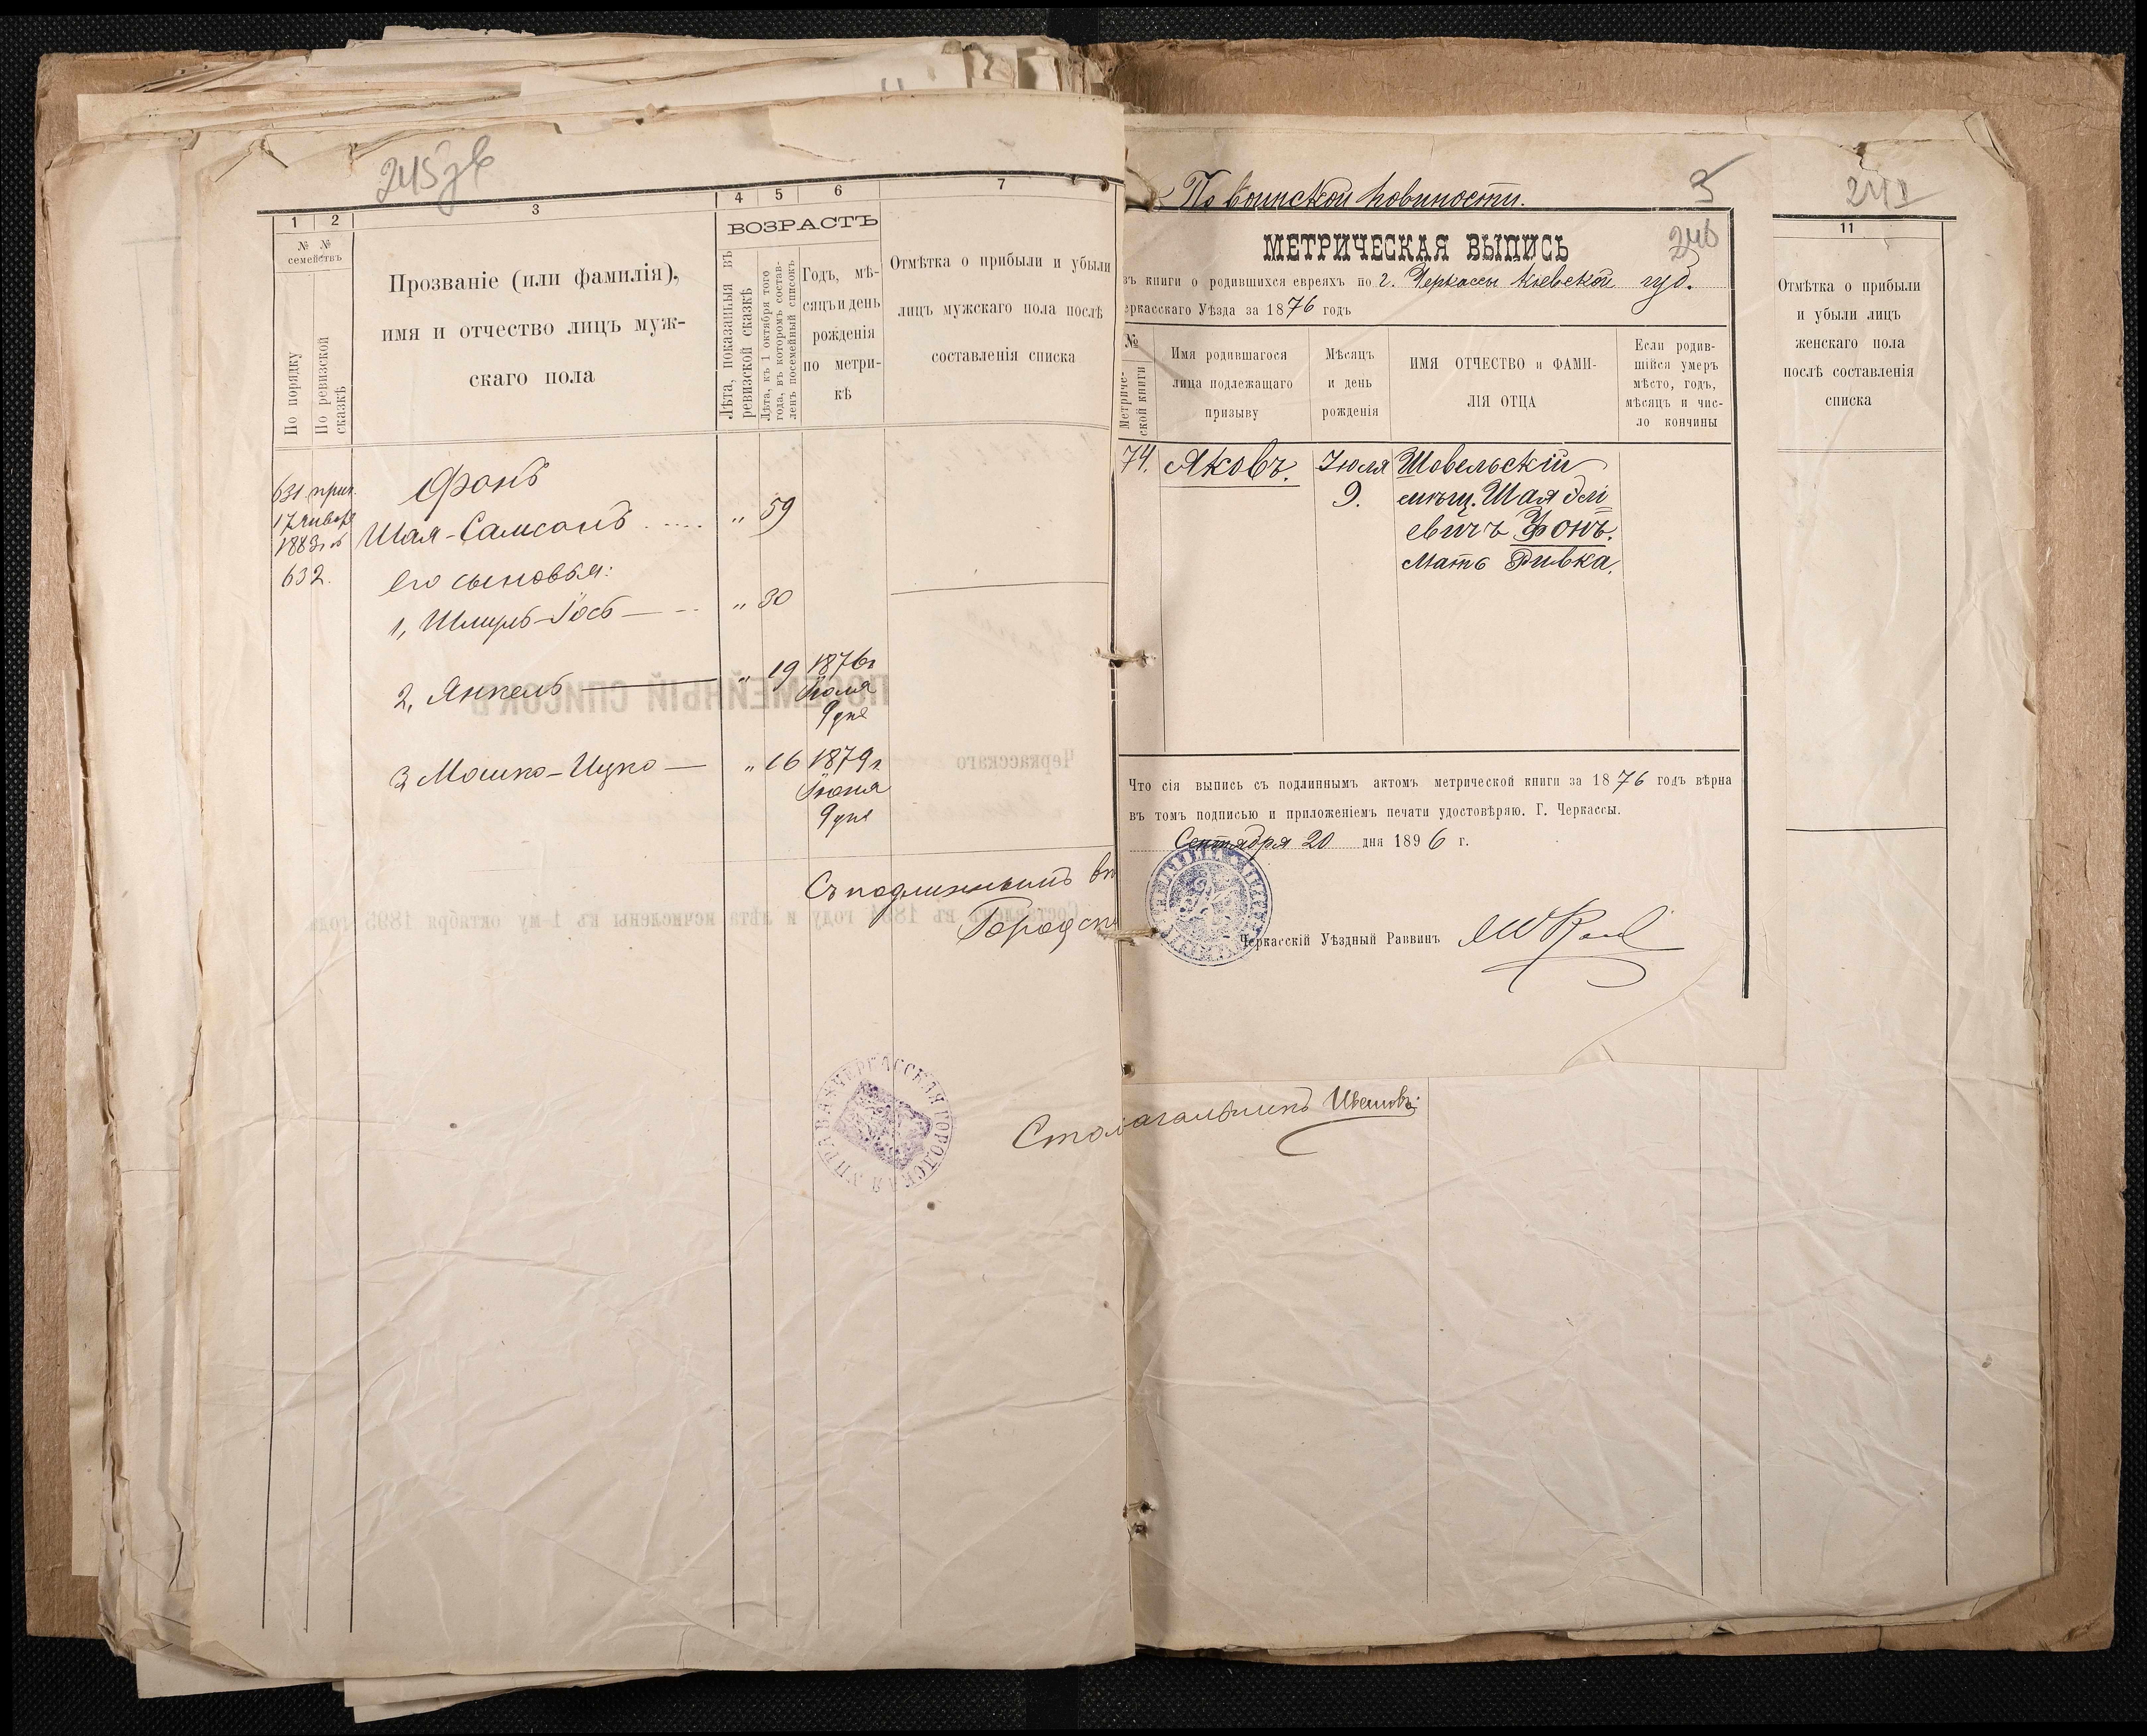 245 зв
1 2 3 4 5 6 7
№ №
семействъ
По порядку
По ревизской сказкѣ
Прозваніе (или фамилія),
имя и отчество лицъ муж-
скаго пола
ВОЗРАСТЪ
Лѣта, показанныя въ
ревизской сказкѣ
Лѣта, къ 1 октября того
года, въ которомъ состав-
ленъ посемейный списокъ
Годъ, мѣ-
сяцъ и день
рожденія
по метри-
кѣ
Отмѣтка о прибыли и убыли
лицъ мужскаго пола послѣ
составленія списка
631 прип.
17 января
1883 г. №
632.
Фонъ
Шая-Самсонъ „ 59
Его сыновья:
1, Шмуль-Іось „ 30
2, Янкель „ 19 1876 г
Іюля
9 дня
3 Мошко-Ицко „ 16 1879 г
Іюня
9 дня
Съ подлиннымъ
Городск
ЧЕРКАССКАЯ ГОРОДСКАЯ УПРАВА
Столоначальникъ
По воинской повинности.
3
246
МЕТРИЧЕСКАЯ ВЫПИСЬ
зъ книги о родившихся евреяхъ по г. Черкассы Кіевской губ.
еркасскаго Уѣзда за 1876 годъ
№
Метриче-
ской книги
Имя родившагося
лица подлежащаго
призыву
Мѣсяцъ
и день
рожденія
ИМЯ ОТЧЕСТВО и ФАМИ-
ЛІЯ ОТЦА
Если родив-
шійся умеръ
мѣсто, годъ,
мѣсяцъ и чис-
ло кончины
74. Яковъ. Іюля 9.
мѣщ. Шая
евичъ Фонъ.
Мать Ривка.
Что сія выпись съ подлиннымъ актомъ метрической книги за 1876 годъ вѣрна
въ томъ подписью и приложеніемъ печати удостовѣряю. Г. Черкассы.
Сентября 20 дня 1896 г.
Черкасскій Уѣздный Раввинъ
11
Отмѣтка о прибыли
и убыли лицъ
женскаго пола
послѣ составленія
списка